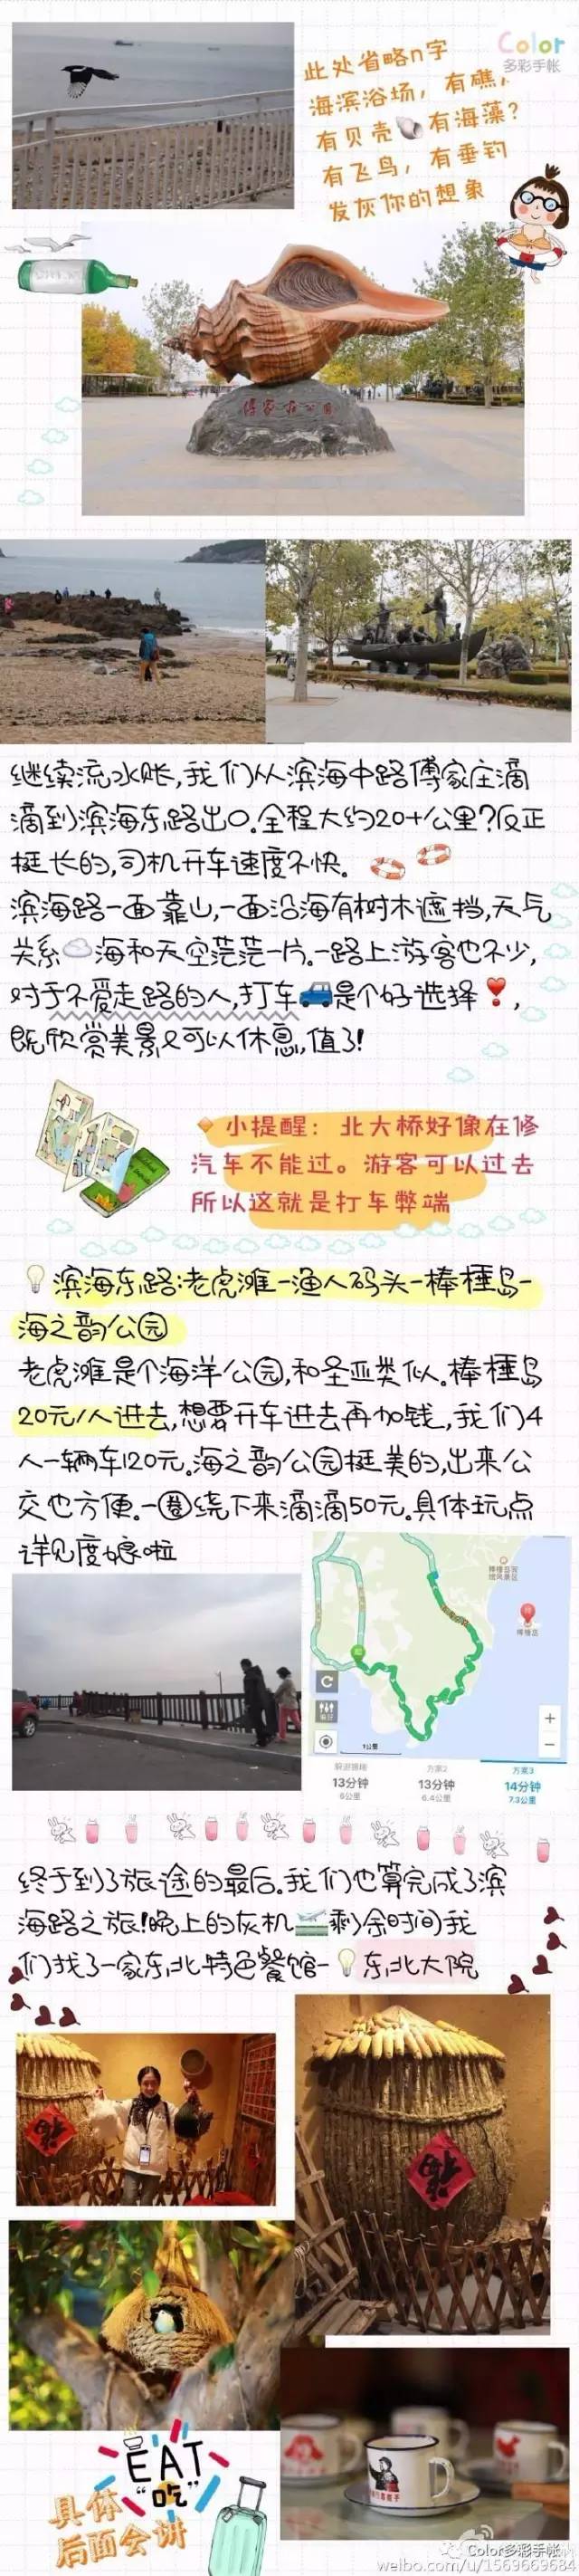 Color
多彩手帐
此处省略n字
海滨浴场，有礁，
有贝壳 有海藻？
有飞鸟，有垂钓
发灰你的想象
傅家庄公园
继续流水账，我们从滨海中路傅家庄滴
滴到滨海东路出口。全程大约20+公里？反正
挺长的，司机开车速度不快。
滨海路一面靠山，一面沿海有树木遮挡，天气
关系 海和天空茫茫一片。一路上游客也不少，
对于不爱走路的人，打车 是个好选择 ，
既欣赏美景又可以休息，值了！
小提醒：北大桥好像在修
汽车不能过。游客可以过去
所以这就是打车弊端
滨海东路：老虎滩-渔人码头-棒棰岛-
海之韵公园
老虎滩是个海洋公园，和圣亚类似。棒棰岛
20元/人进去，想要开车进去再加钱，我们4
人一辆车120元。海之韵公园挺美的，出来公
交也方便。一圈绕下来滴滴50元。具体玩点
详见度娘啦
棒棰岛
终
起
1公里
方案2
方案3
13分钟
13分钟
14分钟
6公里
6.4公里
7.3公里
终于到了旅途的最后。我们也算完成了滨
海路之旅！晚上的灰机 剩余时间我
们找了一家东北特色餐馆- 东北大院
福
福
EAT
“吃”
具体
后面会讲
Color多彩手帐
weibo.com/u/1569669684